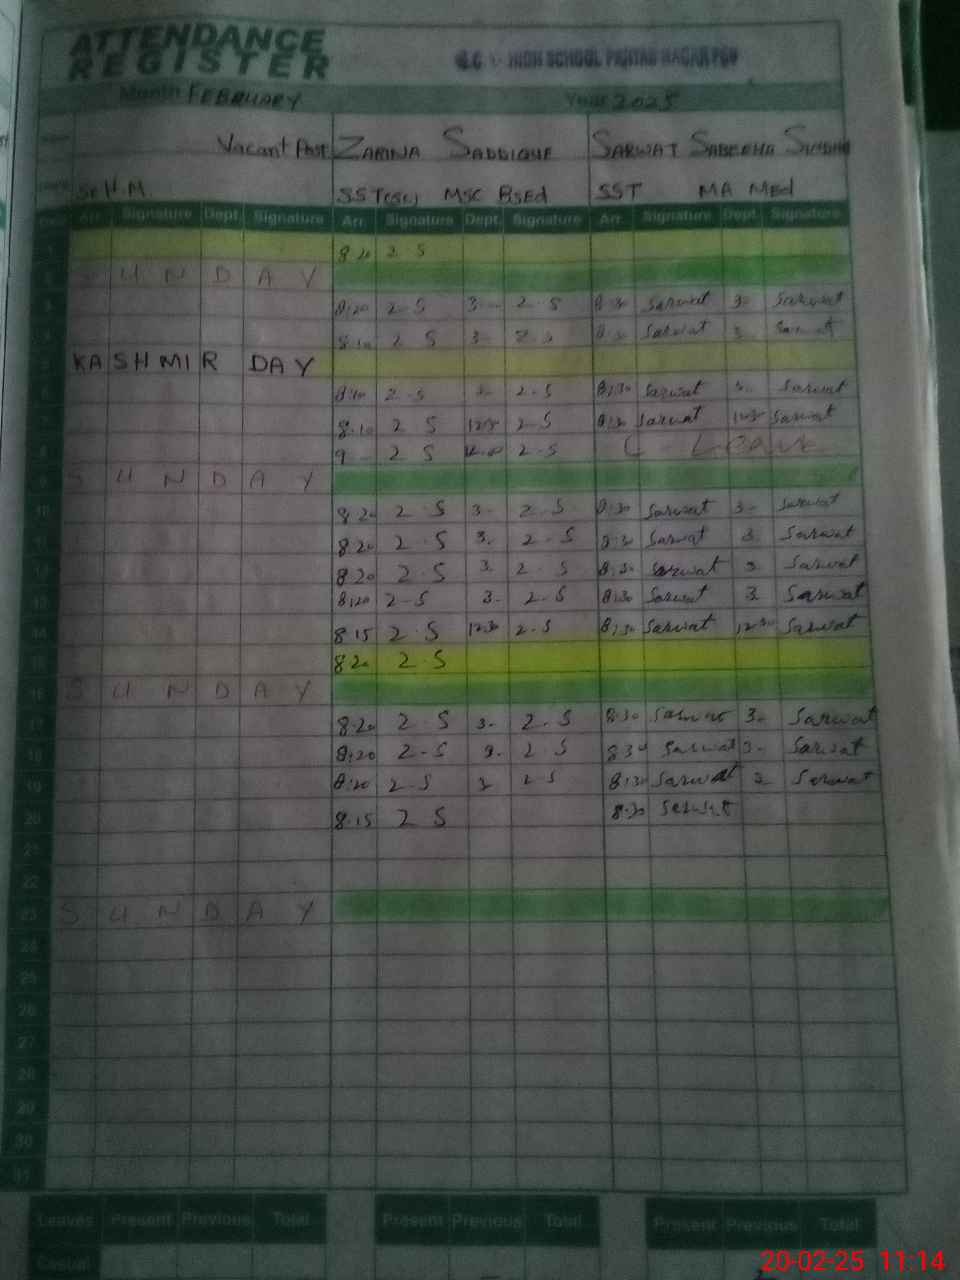 ATTENDANCE
REGISTER
HIGH SCHOOL
Month FEBRUARY Year 2025
Vacant Post ZARINA SADDIQUE SARWAT SABEEHA
H.M. SST MSC BSEd SST MA MEd
Arr. Signature Dept. Signature Arr. Signature Dept. Signature Arr. Signature Dept. Signature
1 8 20 2 S
2 SUNDAY
3 8:20 2-S 3- 2-S Sarwat 3- Sarwat
4 8:10 2 S 3- 2 S Sarwat 3 Sarwat
5 KASHMIR DAY
6 2-S 2-S 8:30 Sarwat 3- Sarwat
7 8-10 2 S 2-S 8:30 Sarwat Sarwat
8 9 - 2 S 2-S C - Leave
9 SUNDAY
10 8 20 2 S 3- 2 S 8:30 Sarwat 3- Sarwat
11 8.20 2-S 3- 2-S 8:30 Sarwat 3 Sarwat
12 8.20 2-S 3- 2-S 8:30 Sarwat 3 Sarwat
13 8:20 2-S 3- 2-S 8:30 Sarwat 3 Sarwat
14 8 15 2-S 12:30 2-S 8:30 Sarwat 12:30 Sarwat
15 8 20 2-S
16 SUNDAY
17 8.20 2-S 3- 2-S 8:30 Sarwat 3- Sarwat
18 8:20 2-S 3- 2 S 8:30 Sarwat 3- Sarwat
19 8:20 2-S 3 2-S 8:30 Sarwat 3 Sarwat
20 8.15 2 S 8:30 Sarwat
21
22
23 SUNDAY
24
25
26
27
28
29
30
31
Leaves Present Previous Total Present Previous Total Present Previous Total
Casual
20-02-25 11:14